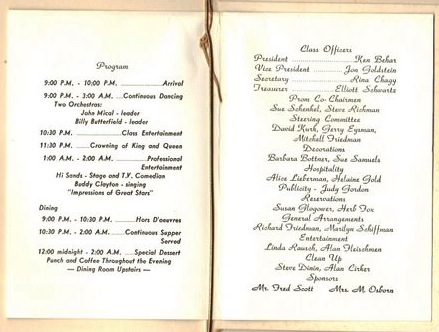 Program
9:00 P.M. - 10:00 P.M. ..............Arrival
9:00 P.M. - 3:00 A.M. ...Continuous Dancing
Two Orchestras:
John Mical - leader
Billy Butterfield - leader
10:30 P.M. ................Class Entertainment
11:30 P.M. .......Crowning of King and Queen
1:00 A.M. - 2:00 A.M. ..........Professional
Entertainment
Hi Sands - Stage and T.V. Comedian
Buddy Clayton - singing
"Impressions of Great Stars"
Dining
9:00 P.M. - 10:30 P.M. .........Hors D'oeuvres
10:30 P.M. - 2:00 A.M. .....Continuous Supper
Served
12:00 midnight - 2:00 A.M. .....Special Dessert
Punch and Coffee Throughout the Evening
— Dining Room Upstairs —
Class Officers
President ......................Ken Behar
Vice President ..............Jon Goldstein
Secretary .....................Rina Chagy
Treasurer ................Elliott Schwartz
Prom Co-Chairmen
Sue Schenkel, Steve Richman
Steering Committee
David Kurk, Gerry Eyeman,
Mitchell Friedman
Decorations
Barbara Bottner, Sue Samuels
Hospitality
Alice Lieberman, Helaine Gold
Publicity - Judy Gordon
Reservations
Susan Glogower, Herb Fox
General Arrangements
Richard Friedman, Marilyn Schiffman
Entertainment
Linda Rausch, Alan Fleischmen
Clean Up
Steve Dinin, Alan Cirker
Sponsors
Mr. Fred Scott Mrs. M. Osborn